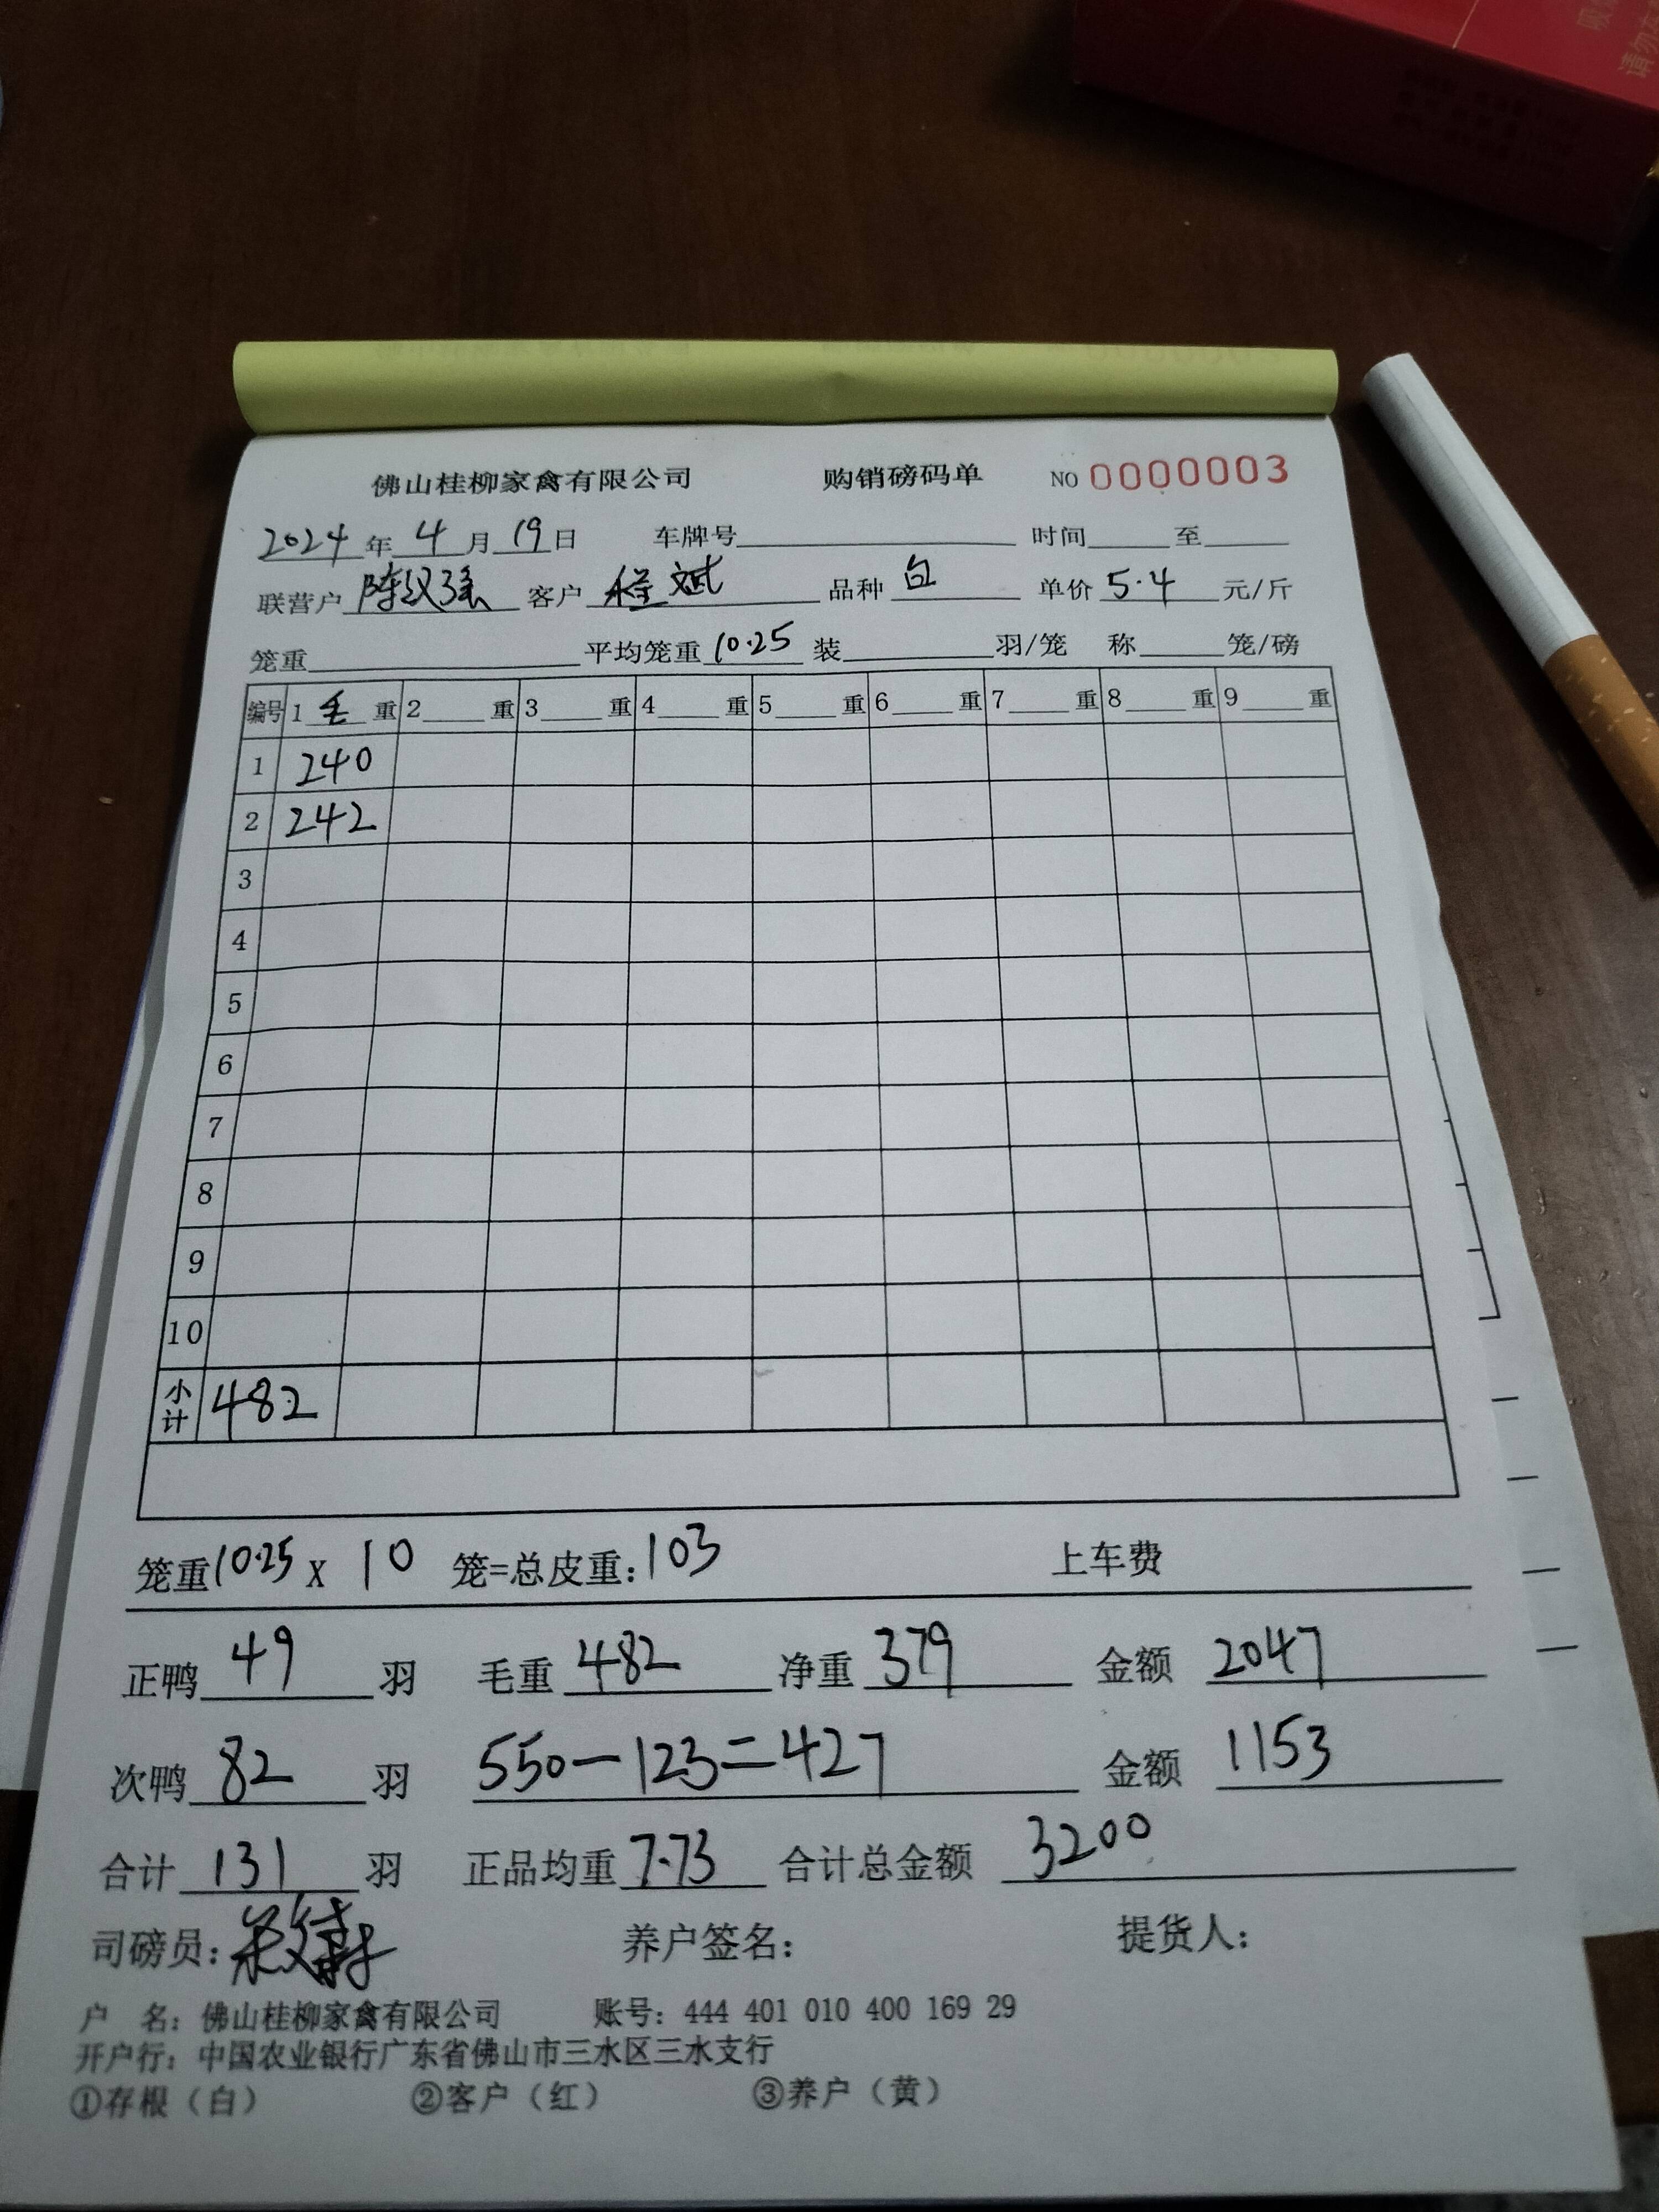 佛山桂柳家禽有限公司 购销磅码单 NO 0000003
2024年4月19日 车牌号 时间 至
联营户 陈汉强 客户 程斌 品种 白 单价 5.4 元/斤
笼重 平均笼重 10.25 装 羽/笼 称 笼/磅
编号 1 毛 重 2 重 3 重 4 重 5 重 6 重 7 重 8 重 9 重
1 240
2 242
3
4
5
6
7
8
9
10
小计 482
笼重 10.25 X 10 笼=总皮重: 103 上车费
正鸭 49 羽 毛重 482 净重 379 金额 2047
次鸭 82 羽 550-123=427 金额 1153
合计 131 羽 正品均重 7.73 合计总金额 3200
司磅员: 养户签名: 提货人:
户 名: 佛山桂柳家禽有限公司 账号: 444 401 010 400 169 29
开户行: 中国农业银行广东省佛山市三水区三水支行
①存根（白） ②客户（红） ③养户（黄）